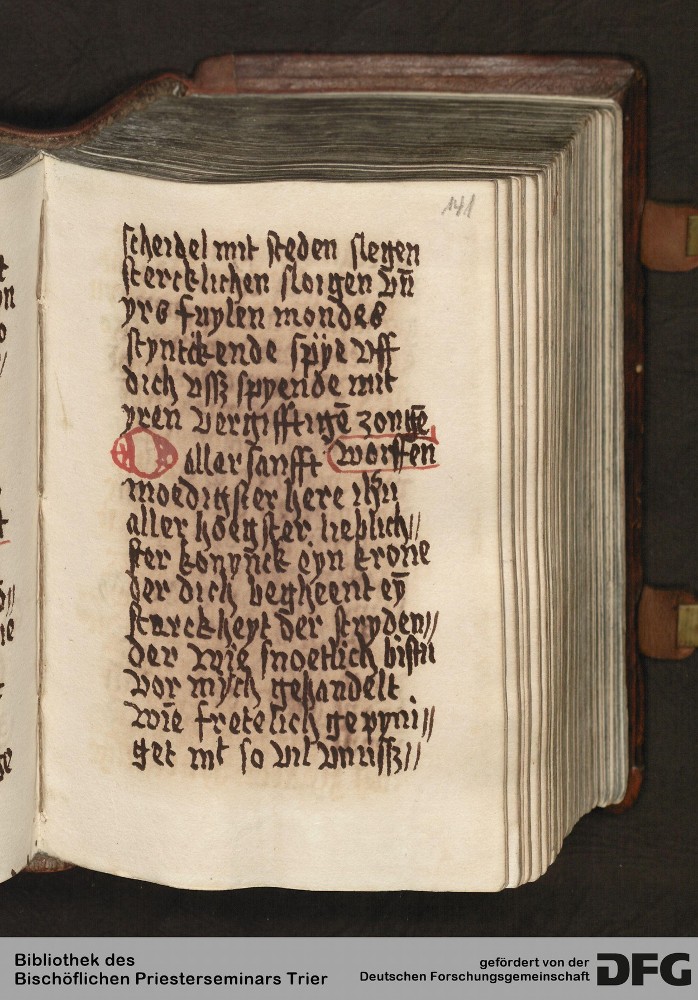 141
scheidel mit steden slegen
stercklichen sloigen vn̄
yrs fuylen mondes
styntckende spÿe vff
dich vsß spyende mit
yren vergifftigē zongē
O aller sanfft worffen
moedigster here ihū
aller hoegster lieblich//
ster konynck eyn krone
der dich begheent eȳ
starckheyt der stryden//
der wie snoetlich bistu
vor mych gehandelt
wie fretelich gepyni//
get mt so vil vnusß//
Bibliothek des
Bischöflichen Priesterseminars Trier
gefördert von der
Deutschen Forschungsgemeinschaft DFG